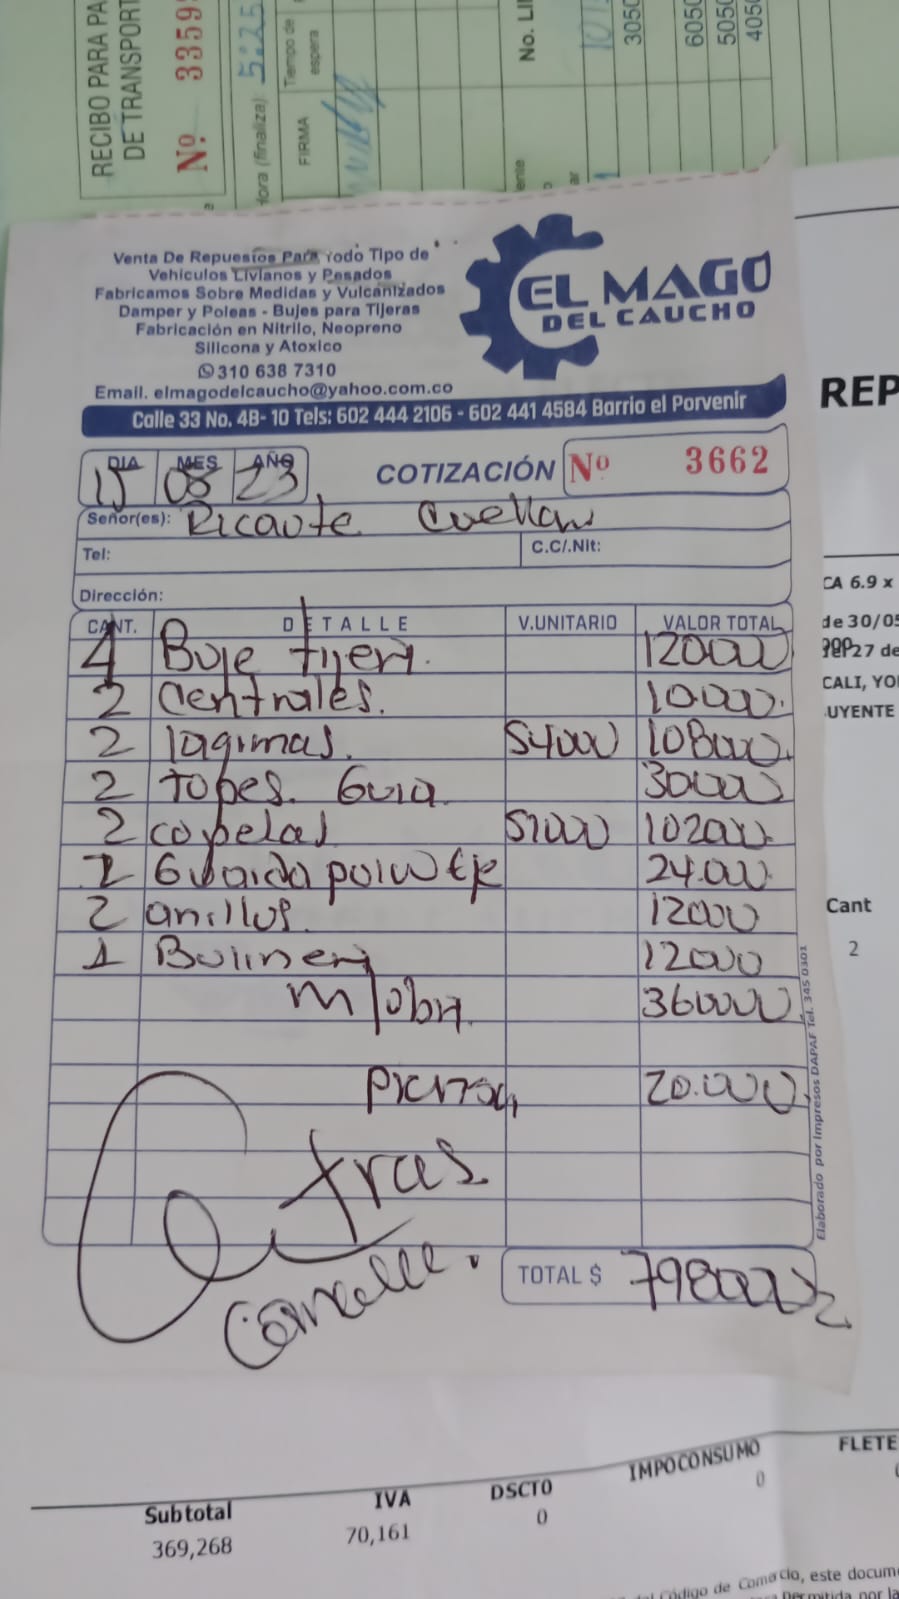 RECIBO PARA PA
DE TRANSPORT
Nº 3359
Hora (finaliza): 5:25
Tiempo de
espera
FIRMA
No. LI
3050
6050
5050
4050
Venta De Repuestos Para Todo Tipo de
Vehiculos Livianos y Pesados
Fabricamos Sobre Medidas y Vulcanizados
Damper y Poleas - Bujes para Tijeras
Fabricación en Nitrilo, Neopreno
Silicona y Atoxico
310 638 7310
Email. elmagodelcaucho@yahoo.com.co
EL MAGO
DEL CAUCHO
Calle 33 No. 4B- 10 Tels: 602 444 2106 - 602 441 4584 Barrio el Porvenir
DIA MES AÑO
15 08 23
COTIZACIÓN Nº 3662
Señor(es): Ricaute Cuellar
Tel: C.C/.Nit:
Dirección:
CANT. DETALLE V.UNITARIO VALOR TOTAL
4 Buje tijera. 120000
2 Centrales. 10.000.
2 lagimas. 54000 108000.
2 topes. Guia 30000
2 copelas 51000 102000
1 Guarda polvo eje 24.000
2 anillos. 12000
1 Balinera 12000
m/obra. 360000
20.000
Otras
TOTAL $ 798000
Elaborado por Impresos DAPAF Tel. 345 0301
REP
CA 6.9 x
de 30/05
27 de
CALI, YO
UYENTE
Cant
2
Subtotal IVA DSCTO IMPOCONSUMO FLETE
369,268 70,161 0 0
Código de Comercio, este docum
permitida por la